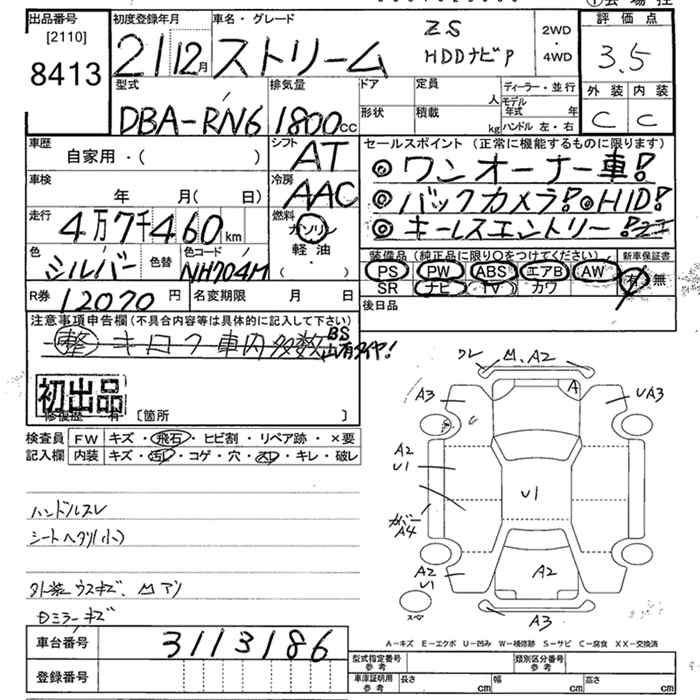 出品番号 初度登録年月 車名・グレード 評価点
[2110] 21 12月 ストリーム ZS HDDナビP 2WD・4WD 3.5
8413
外装 内装
C C
型式 排気量 ドア 定員 人 ディーラー・並行
DBA-RN6 1800cc 形状 積載 kg モデル年式 年
ハンドル 左・右
車歴 シフト セールスポイント(正常に機能するものに限ります)
自家用・( ) AT ◎ワンオーナー車!
車検 冷房 ◎バックカメラ!◎HID!
年 月( 日) AAC ◎キーレスエントリー!
走行 燃料
4万7千460km ガソリン
軽油・
( )
色 色替 色コード 装備品(純正品に限り○をつけてください) 新車保証書
シルバー NH704M PS PW ABS エアB AW 有・無
SR ナビ TV カワ
R券 12070円 名変期限 月 日 後日品
注意事項申告欄(不具合内容等は具体的に記入して下さい)
車内多数
初出品
修復歴 有 〔箇所 〕
検査員 FW キズ・飛石・ヒビ割・リペア跡・×要
記入欄 内装 キズ・汚レ・コゲ・穴・スレ・キレ・破レ
ハンドルスレ
シートヘタリ(小)
外装ウスキズ、凹アリ
ミラーキズ
ワレ 凹、A2
A
A3 UA3
A2
U1
U1
カバー
A4
A2
U1
A2
A3
A−キズ E−エクボ U−凹み W−補修跡 S−サビ C−腐食 XX−交換済
車台番号 3113186
登録番号
型式指定番号 参考 類別区分番号 参考
車庫証明用 参考 長さ cm 幅 cm 高さ cm